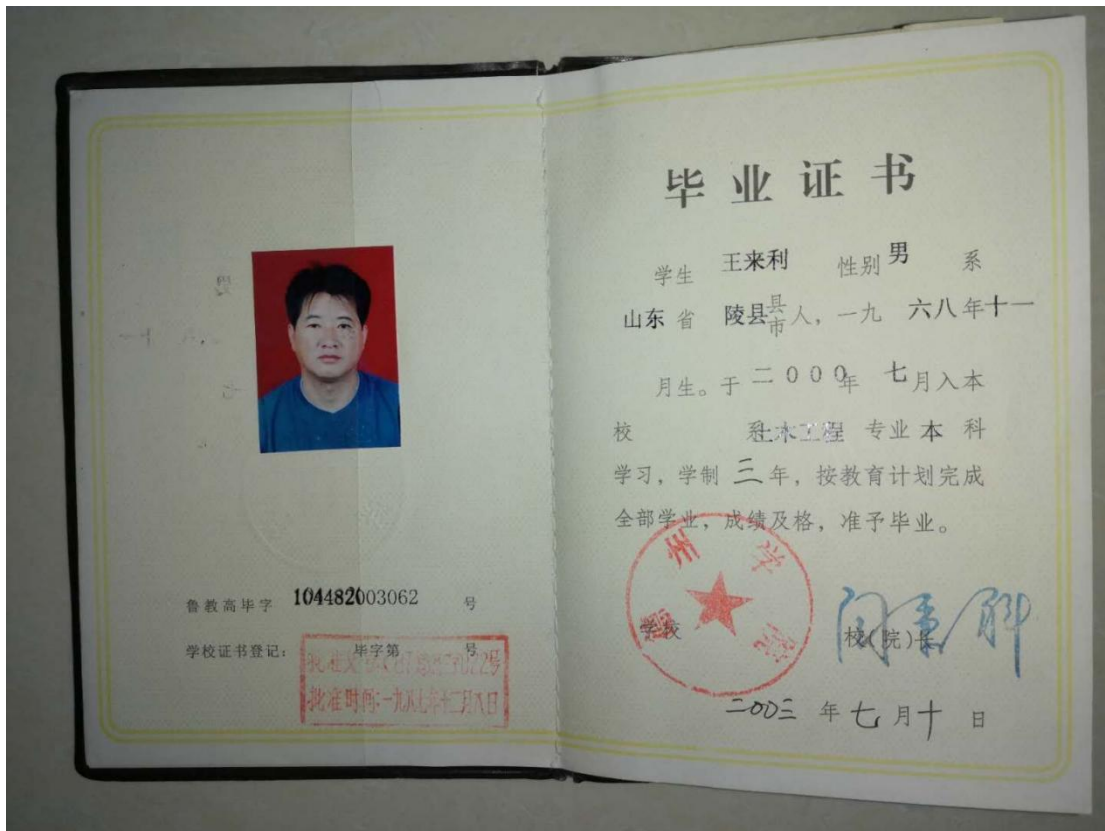 鲁教高毕字 104482003062 号
学校证书登记： 毕字第 号
批准时间:一九八七年十二月八日
毕业证书
学生 王来利 性别 男 系
山东 省 陵县 县市 人，一九 六八 年 十一
月生。于 二000 年 七 月入本
校 系 土木工程 专业 本 科
学习，学制 三 年，按教育计划完成
全部学业，成绩及格，准予毕业。
州学院
学校 校(院)长
二00三 年 七 月 十 日